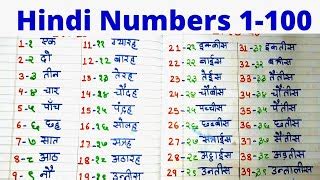 Hindi Numbers 1-100
1-१ एक
2-२ दो
3-३ तीन
4-४ चार
5-५ पाँच
6-६ छह
7-७ सात
8-८ आठ
9-९ नौ
11-११ ग्यारह
12-१२ बारह
13-१३ तेरह
14-१४ चौदह
15-१५ पंद्रह
16-१६ सोलह
17-१७ सत्रह
18-१८ अठारह
19-१९ उन्नीस
21-२१ इक्कीस
22-२२ बाईस
23-२३ तेईस
24-२४ चौबीस
25-२५ पच्चीस
26-२६ छब्बीस
27-२७ सत्ताईस
28-२८ अट्ठाईस
29-२९ उनतीस
31-३१ इकतीस
32-३२ बत्तीस
33-३३ तैंतीस
34-३४ चौंतीस
35-३५ पैंतीस
36-३६ छत्तीस
37-३७ सैंतीस
38-३८ अड़तीस
39-३९ उनतालीस